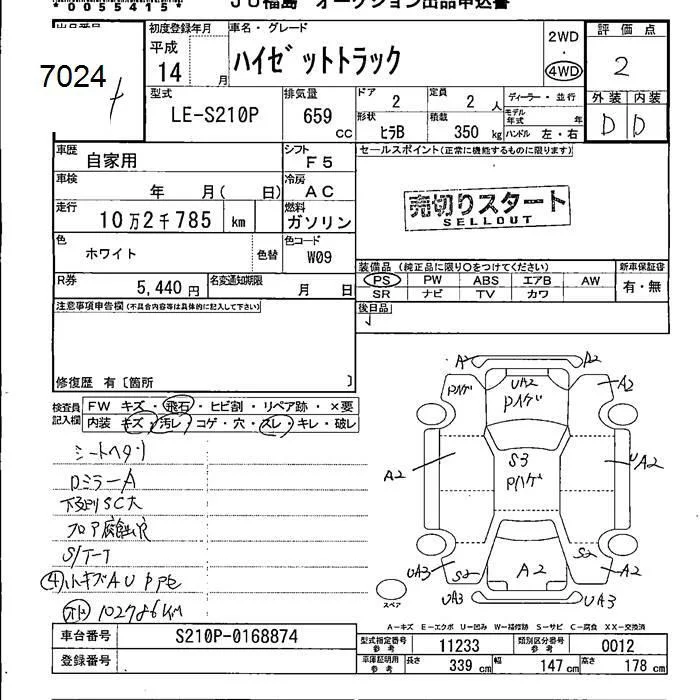 00554151
JU福島 オークション出品申込書
出品番号
7024
初度登録年月
平成
14 月
車名・グレード
ハイゼットトラック
2WD
・
4WD
評価点
2
外装 内装
D D
型式
LE-S210P
排気量
659 CC
ドア
2
定員
2 人
ディーラー・並行
形状
ヒラB
積載
350 kg
モデル年式 年
ハンドル 左・右
車歴
自家用
シフト
F5
セールスポイント(正常に機能するものに限ります)
車検
年 月( 日)
冷房
AC
売切りスタート
SELLOUT
走行
10万2千785 km
燃料
ガソリン
色
ホワイト
色替
色コード
W09
R券
5,440 円
名変通知期限
月 日
装備品 (純正品に限り○をつけてください)
PS PW ABS エアB AW
SR ナビ TV カワ
新車保証書
有・無
後日品
注意事項申告欄(不具合内容等は具体的に記入して下さい)
修復歴 有〔箇所 〕
検査員記入欄
FW キズ・飛石・ヒビ割・リペア跡・×要
内装 キズ・汚レ・コゲ・穴・スレ・キレ・破レ
シートヘタリ
DミラーA
下廻りSC大
フロア腐蝕穴
S/T-T
④小キズAU
102786KM
A2
A2
Pハゲ
UA2
Pハゲ
A2
A2
S3
Pハゲ
UA2
UA3
S2
A2
S2
A2
UA3
UA3
スペア
A-キズ E-エクボ U-凹み W-補修跡 S-サビ C-腐食 XX-交換済
車台番号
S210P-0168874
登録番号
型式指定番号 参考
11233
類別区分番号 参考
0012
車庫証明用 参考
長さ 339 cm
幅 147 cm
高さ 178 cm